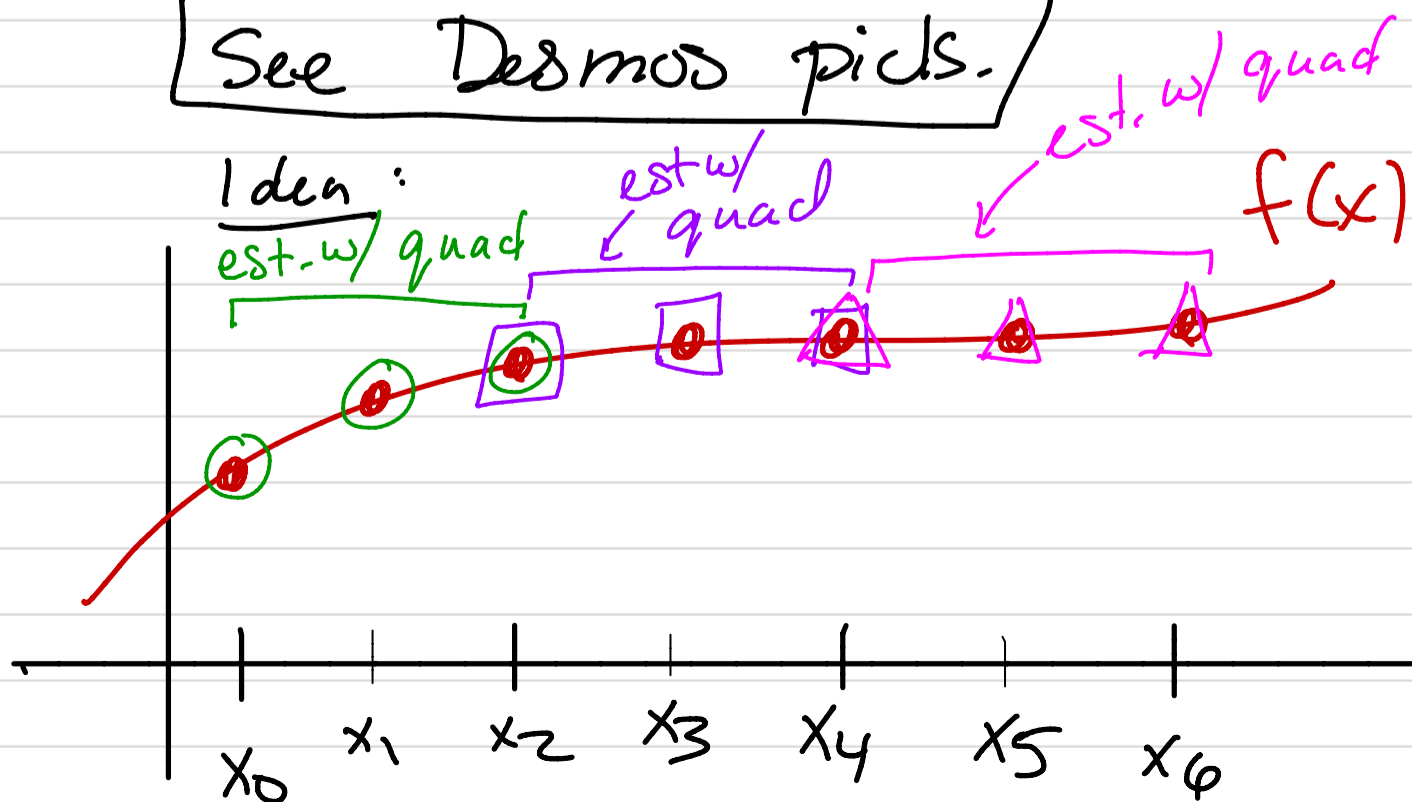 See Desmos pics.
Idea:
est. w/ quad
est w/ quad
est. w/ quad
f(x)
x0 x1 x2 x3 x4 x5 x6